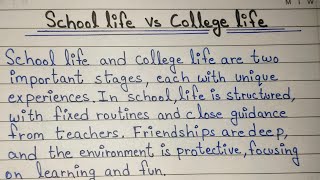 School life vs College life
School life and college life are two
important stages, each with unique
experiences. In school, life is structured,
with fixed routines and close guidance
from teachers. Friendships are deep,
and the environment is protective, focusing
on learning and fun.